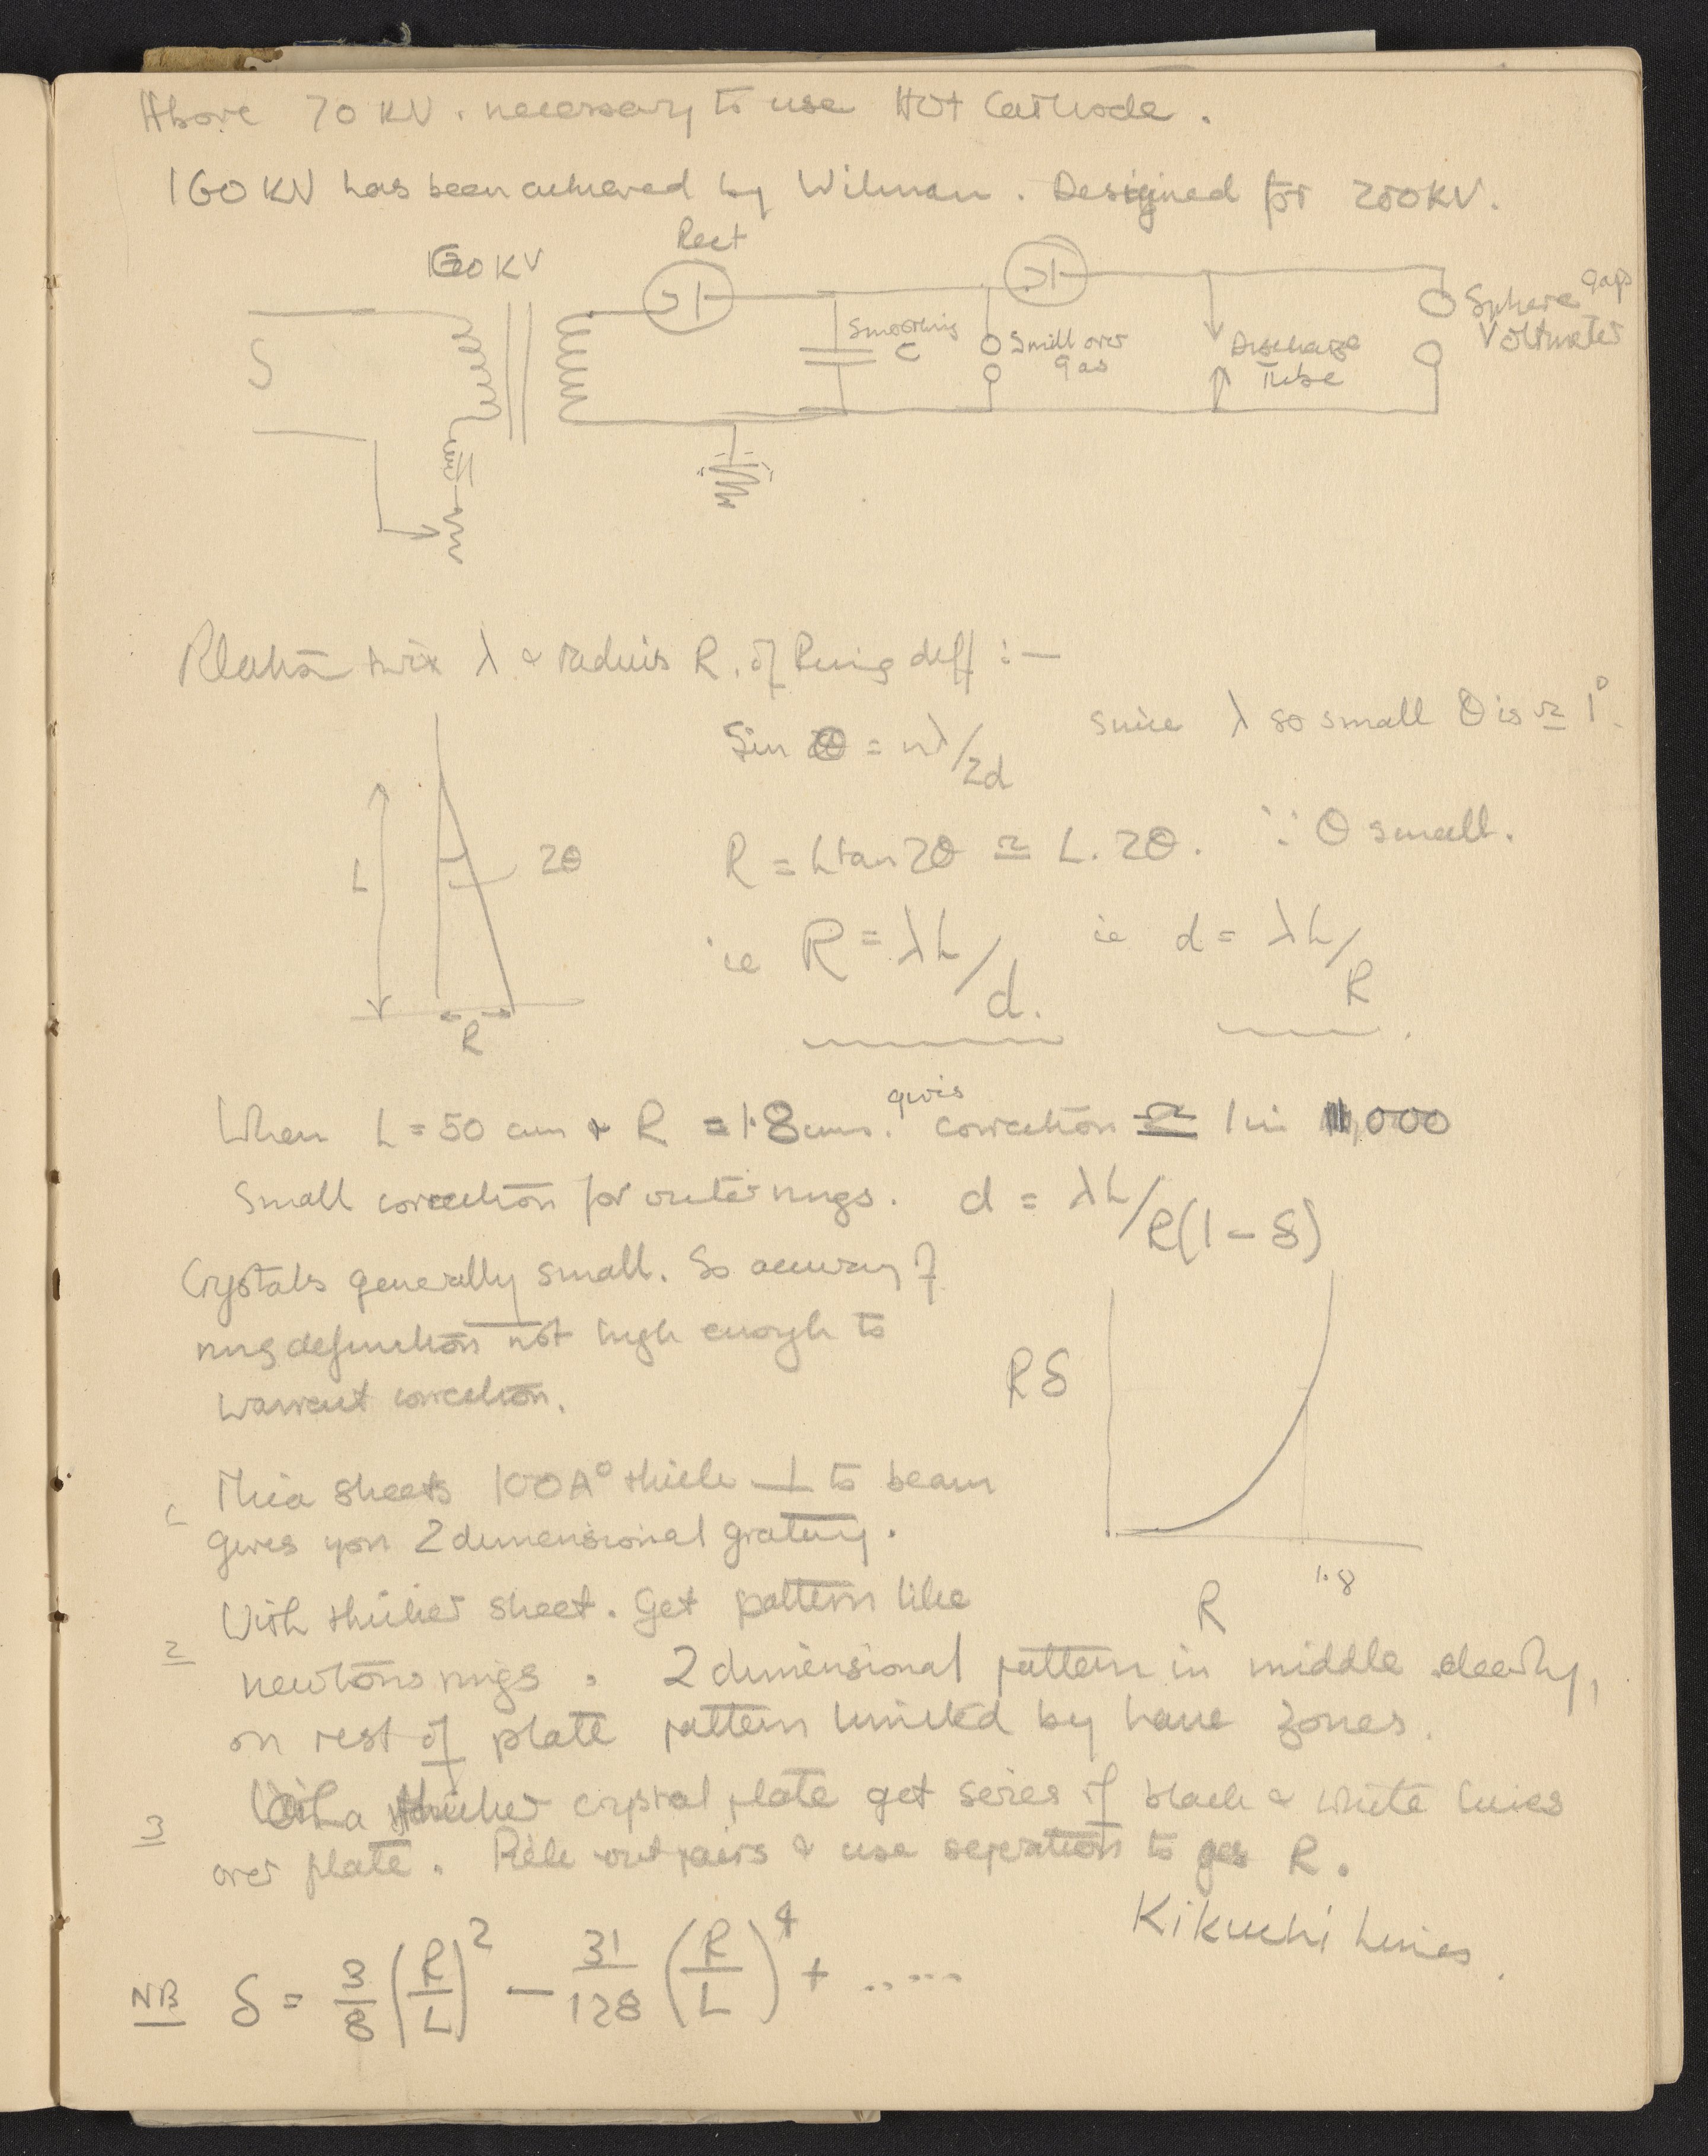 Above 70 KV. necessary to use Hot Cathode.
160 KV has been achieved by Wilman. Designed for 200KV.
Rect
KV
S
Smoothing
C
Spill over
gas
Discharge
Tube
Sphere gaps
Voltmeter
Relation twix λ & radius R. of Ring diff :—
Sin θ = nλ/2d since λ so small θ is ≃ 1°.
L
2θ
R
R = L tan 2θ ≃ L. 2θ. ∵ θ small.
ie R = λL/d. ie d = λL/R
When L = 50 cm & R = 1.8 cms. gives correction ≃ 1 in ,000
Small correction for outer rings. d = λL/R(1 − δ)
Crystals generally small. So accuracy of
ring definition not high enough to
warrant correction.
Rδ
R
1.8
Mica sheets 100A° thick ⊥ to beam
gives you 2 dimensional grating.
2 With thicker sheet. Get pattern like
newtons rings. 2 dimensional pattern in middle clearly,
on rest of plate pattern limited by Laue zones.
3 With a thicker crystal plate get series of black & white lines
over plate. Pick out pairs & use seperation to get R.
Kikuchi Lines.
NB δ = 3/8 (R/L)² − 31/128 (R/L)⁴ + .....